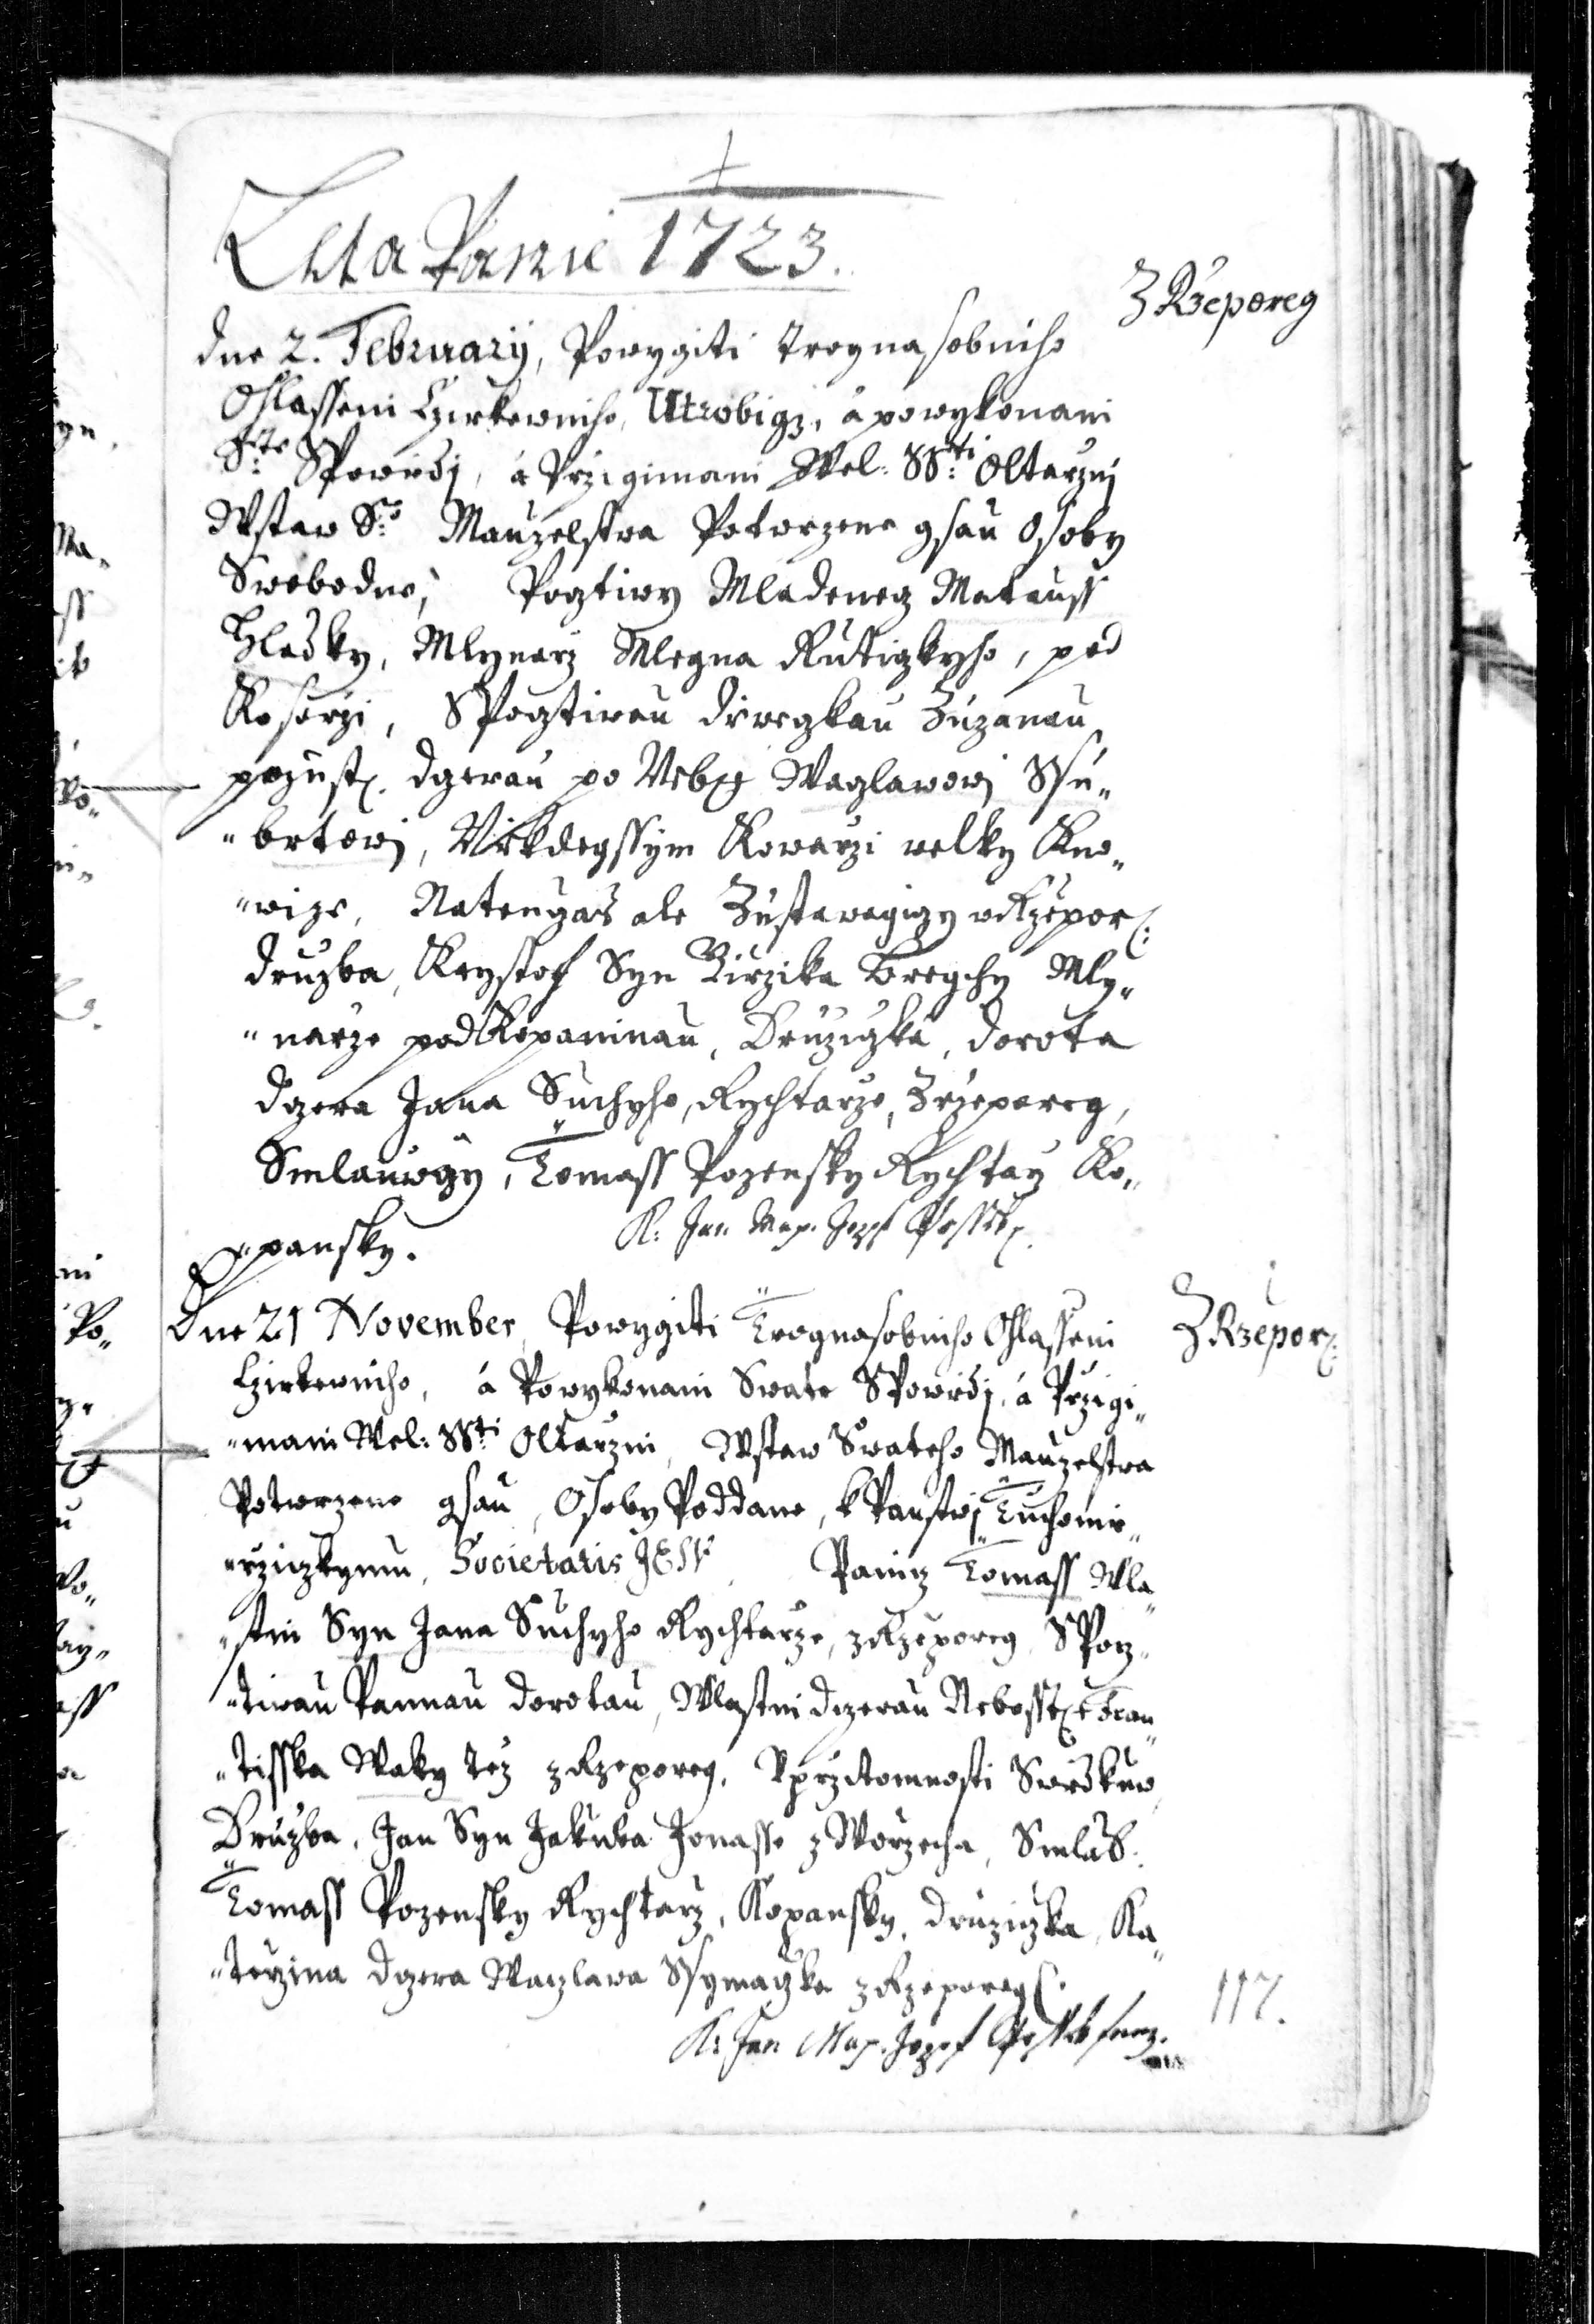 Leta Panie 1723.
Z Rzeporeg
dne 2. February, Powygiti trognasobniho
Ohlasseni Czirkewniho, Utrobigz, á powykonani
S:te Spowidi, á Przigimani Wel: SS:ti Oltarzni
Wstaw S:o Mauzelstva Potwrzene gsau Osoby
Swobodne, Pogtiwy Mladeneg Matauss
Hladky, Mlynarz Mlegna Rutigkyho, pod
Kosorzi, SPogtiwau diwegkau Zuzanau
pozust: dgerau po Nebo: Waglawowi Ssu„
„brtowi, Niekdegssym Kowarzi welky Kno„
„wize, Natengas ale Zustawagigy wRzepor:
družba, Krystof Syn Girzika Bregchy Mly„
„narze podKopaninau, Družigka, dorota
dgera Jana Suchyho, Rychtarze, Zrzeporeg,
Smlauwgy, Tomass Pozensky Rychtarz Ko„
„pansky. K: Jan Jozef
Dne 21 November, Powygiti Trognasobniho Ohlasseni
Z Rzepor:
Czirkewniho, á Powykonani Swate SPowidi, á Przigi„
„mani Wel: SS:ti Oltarzni, Wstaw Swateho Mauzelstwa
Potwrzene gsau, Osoby Poddane, k Panstwi Tuchomie„
„rzigkymu, Societatis JESU Panig Tomass Wla„
„stni Syn Jana Suchyho Rychtarze, zRzeporeg, SPog„
„tiwau Pannau dorotau, Wlastni dgerau Nebosst: Fran„
„tisska Waky též zRzeporeg, Vprzitomnosti Swiedkuw,
Družba, Jan Syn Jakuba Jonasse z Worzecha, Smlaw:
Tomass Pozensky Rychtarz, Kopansky, družigka, Ka„
„terzina dgera Waglawa Ssymagka zRzeporeg:
K: Jan Jozef
117.